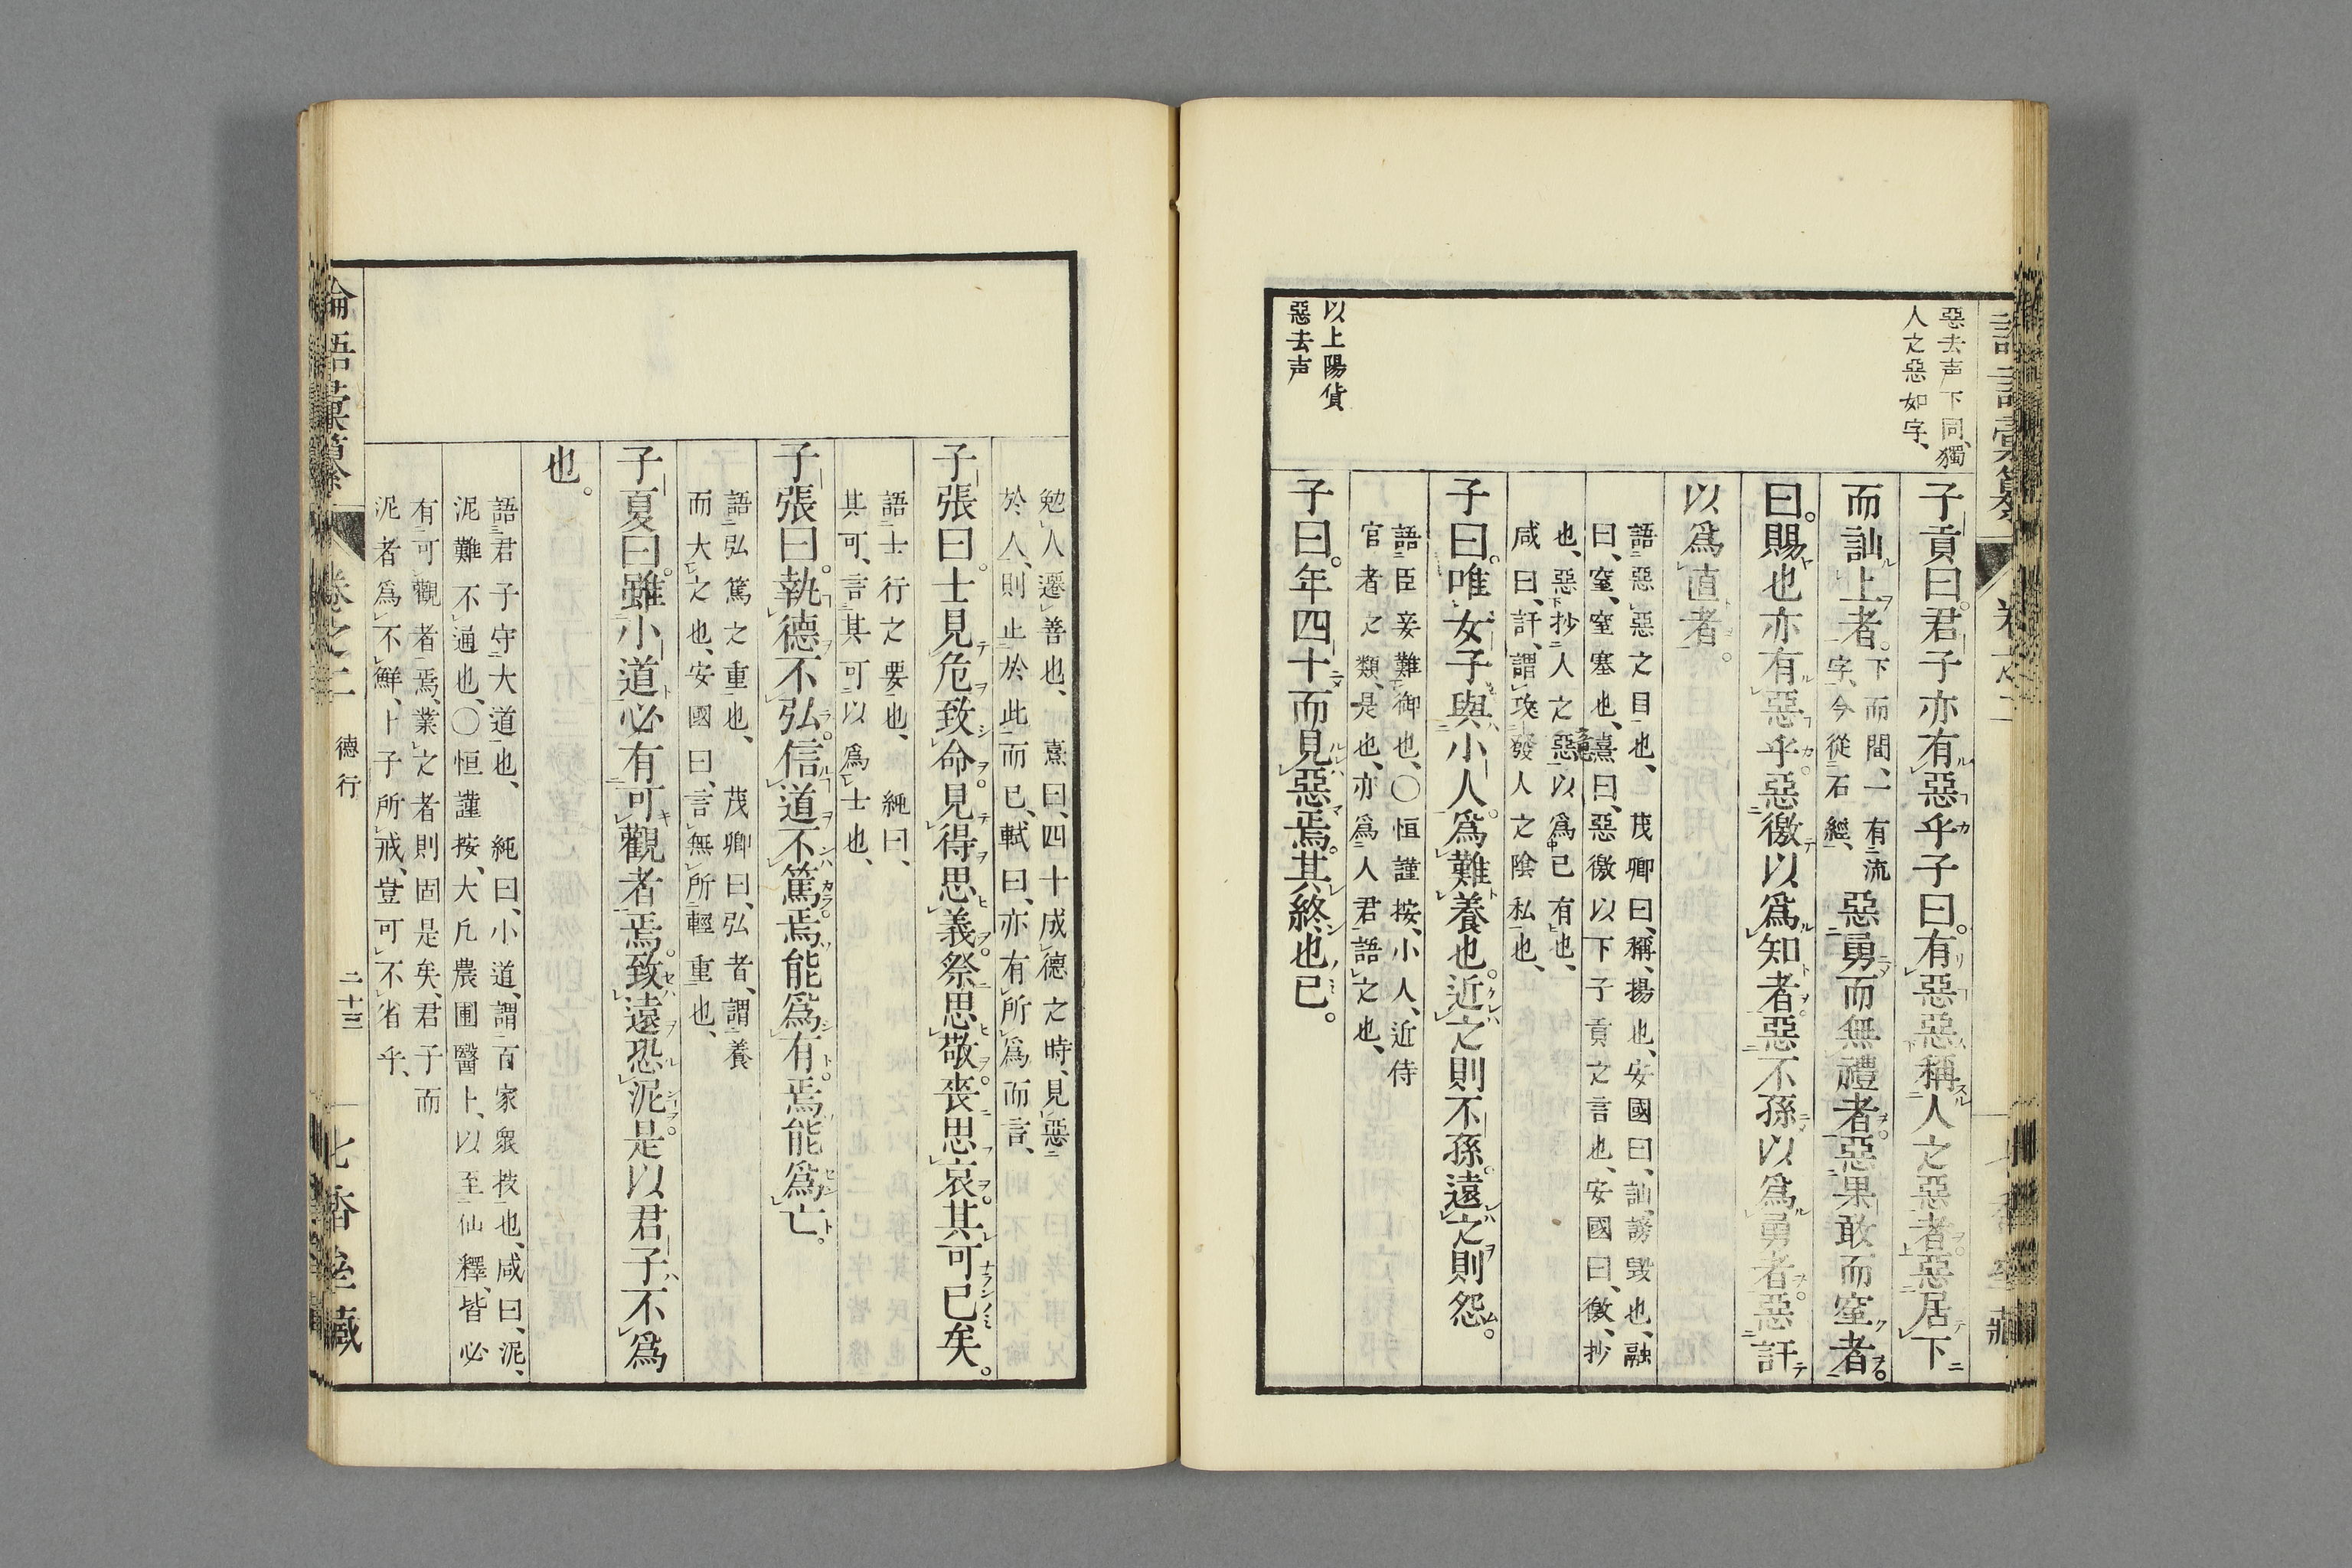 惡去声下同、獨
人之惡如字、
子貢曰。君子亦有惡乎子曰。有惡惡稱人之惡者。惡居下
而訕上者。下而間、一有流
字、今從石經、惡勇而無禮者。惡果敢而窒者。
曰。賜也亦有惡乎。惡徼以爲知者。惡不孫以爲勇者。惡訐
以爲直者。
語惡惡之目也、茂卿曰、稱、揚也、安國曰、訕、謗毀也、融
曰、窒、窒塞也、熹曰、惡徼以下子貢之言也、安國曰、徼、抄
也、惡抄人之惡以爲己有也、
咸曰、訐、謂攻發人之陰私也、
子曰。唯女子與小人。爲難養也。近之則不孫。遠之則怨。
語臣妾難御也、〇恒謹按、小人、近侍
官者之類、是也、亦爲人君語之也、
以上陽貨
惡去声
子曰。年四十而見惡焉。其終也已。
勉人遷善也、熹曰、四十成德之時、見惡
於人、則止於此而已、軾曰、亦有所爲而言、
子張曰。士見危致命。見得思義。祭思敬。喪思哀。其可已矣。
語士行之要也、純曰、
其可、言其可以爲士也、
子張曰。執德不弘。信道不篤。焉能爲有。焉能爲亡。
語弘篤之重也、茂卿曰、弘者、謂養
而大之也、安國曰、言無所輕重也、
子夏曰。雖小道必有可觀者焉。致遠恐泥。是以君子不爲
也。
語君子守大道也、純曰、小道、謂百家衆技也、咸曰、泥、
泥難不通也、〇恒謹按、大凡農圃醫卜、以至仙釋、皆必
有可觀者焉、業之者則固是矣、君子而
泥者爲不鮮、卜子所戒、豈可不省乎、
論語彙纂 卷之二 德行 二十三